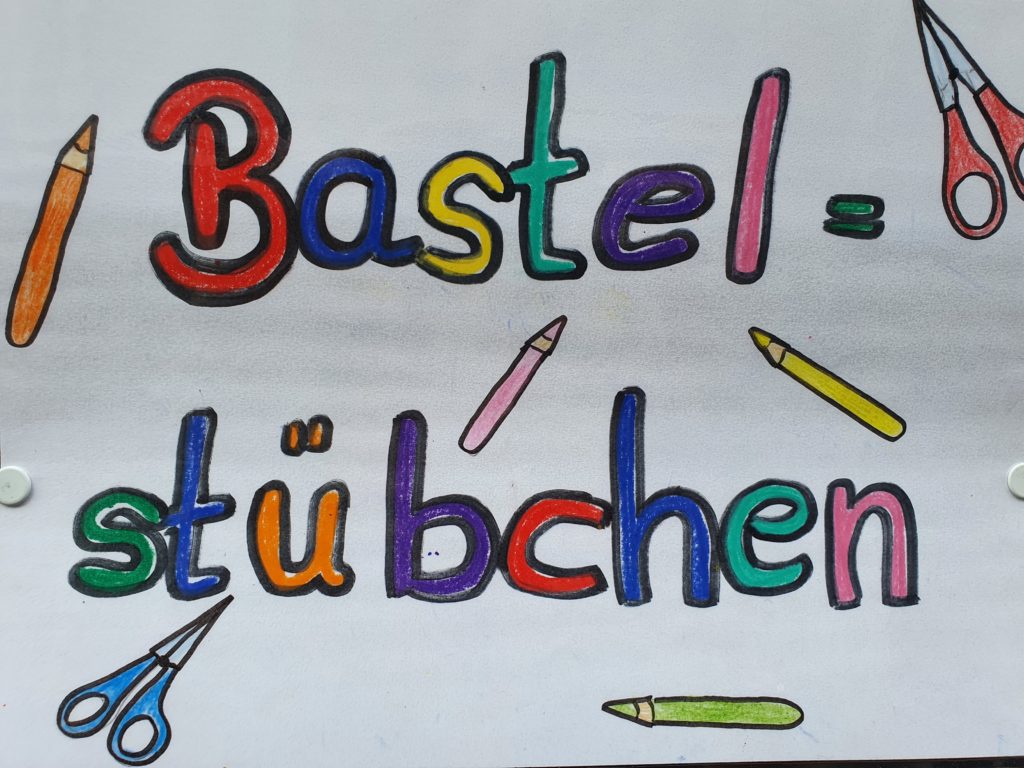 Bastel=
stübchen